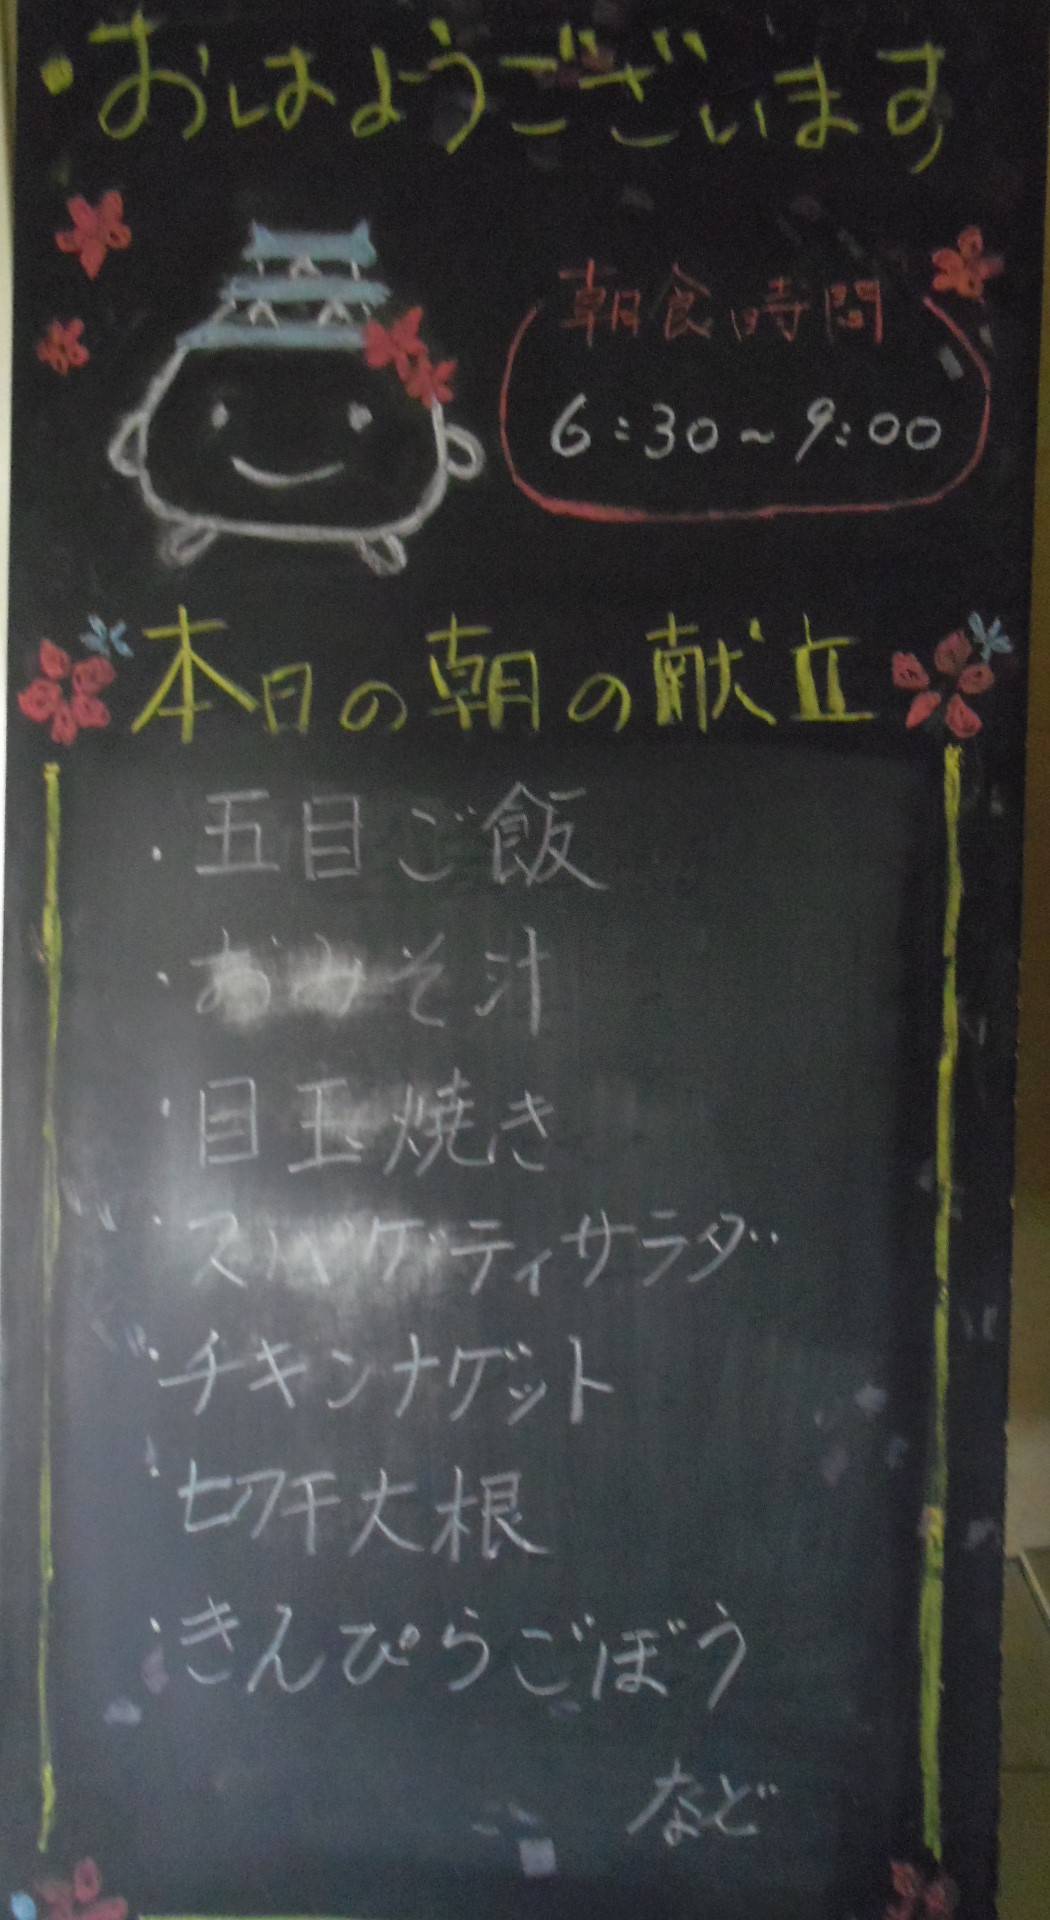 ・おはようございます
朝食時間
6:30～9:00
本日の朝の献立
・五目ご飯
・おみそ汁
・目玉焼き
・スパゲティサラダ
・チキンナゲット
・切干大根
・きんぴらごぼう
など